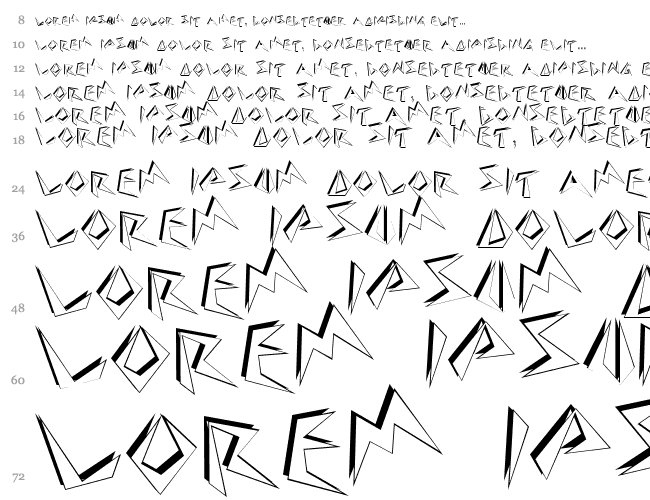 8 LOREM IPSUM DOLOR SIT AMET, CONSECTETUER ADIPISCING ELIT...
10 LOREM IPSUM DOLOR SIT AMET, CONSECTETUER ADIPISCING ELIT...
12 LOREM IPSUM DOLOR SIT AMET, CONSECTETUER ADIPISCING E
14 LOREM IPSUM DOLOR SIT AMET, CONSECTETUER ADI
16 LOREM IPSUM DOLOR SIT AMET, CONSECTETUER
18 LOREM IPSUM DOLOR SIT AMET, CONSECT
24 LOREM IPSUM DOLOR SIT AME
36 LOREM IPSUM DOLOR
48 LOREM IPSUM
60 LOREM IPSU
72 LOREM IPS